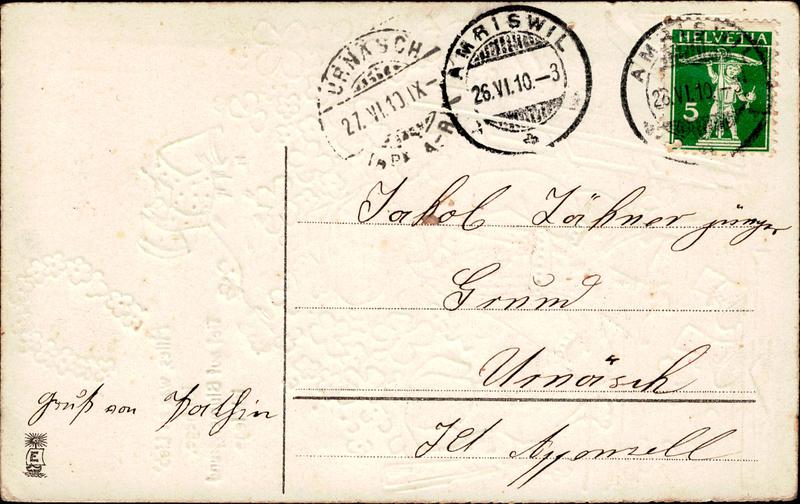 URNÄSCH
27.VI.10.IX-
AMRISWIL
26.VI.10.-3
AMRISWIL
26.VI.10.-
HELVETIA
5
Jakob Zähner jünger
Grund
Urnäsch
Kt Appenzell
Gruß von Pathin
E